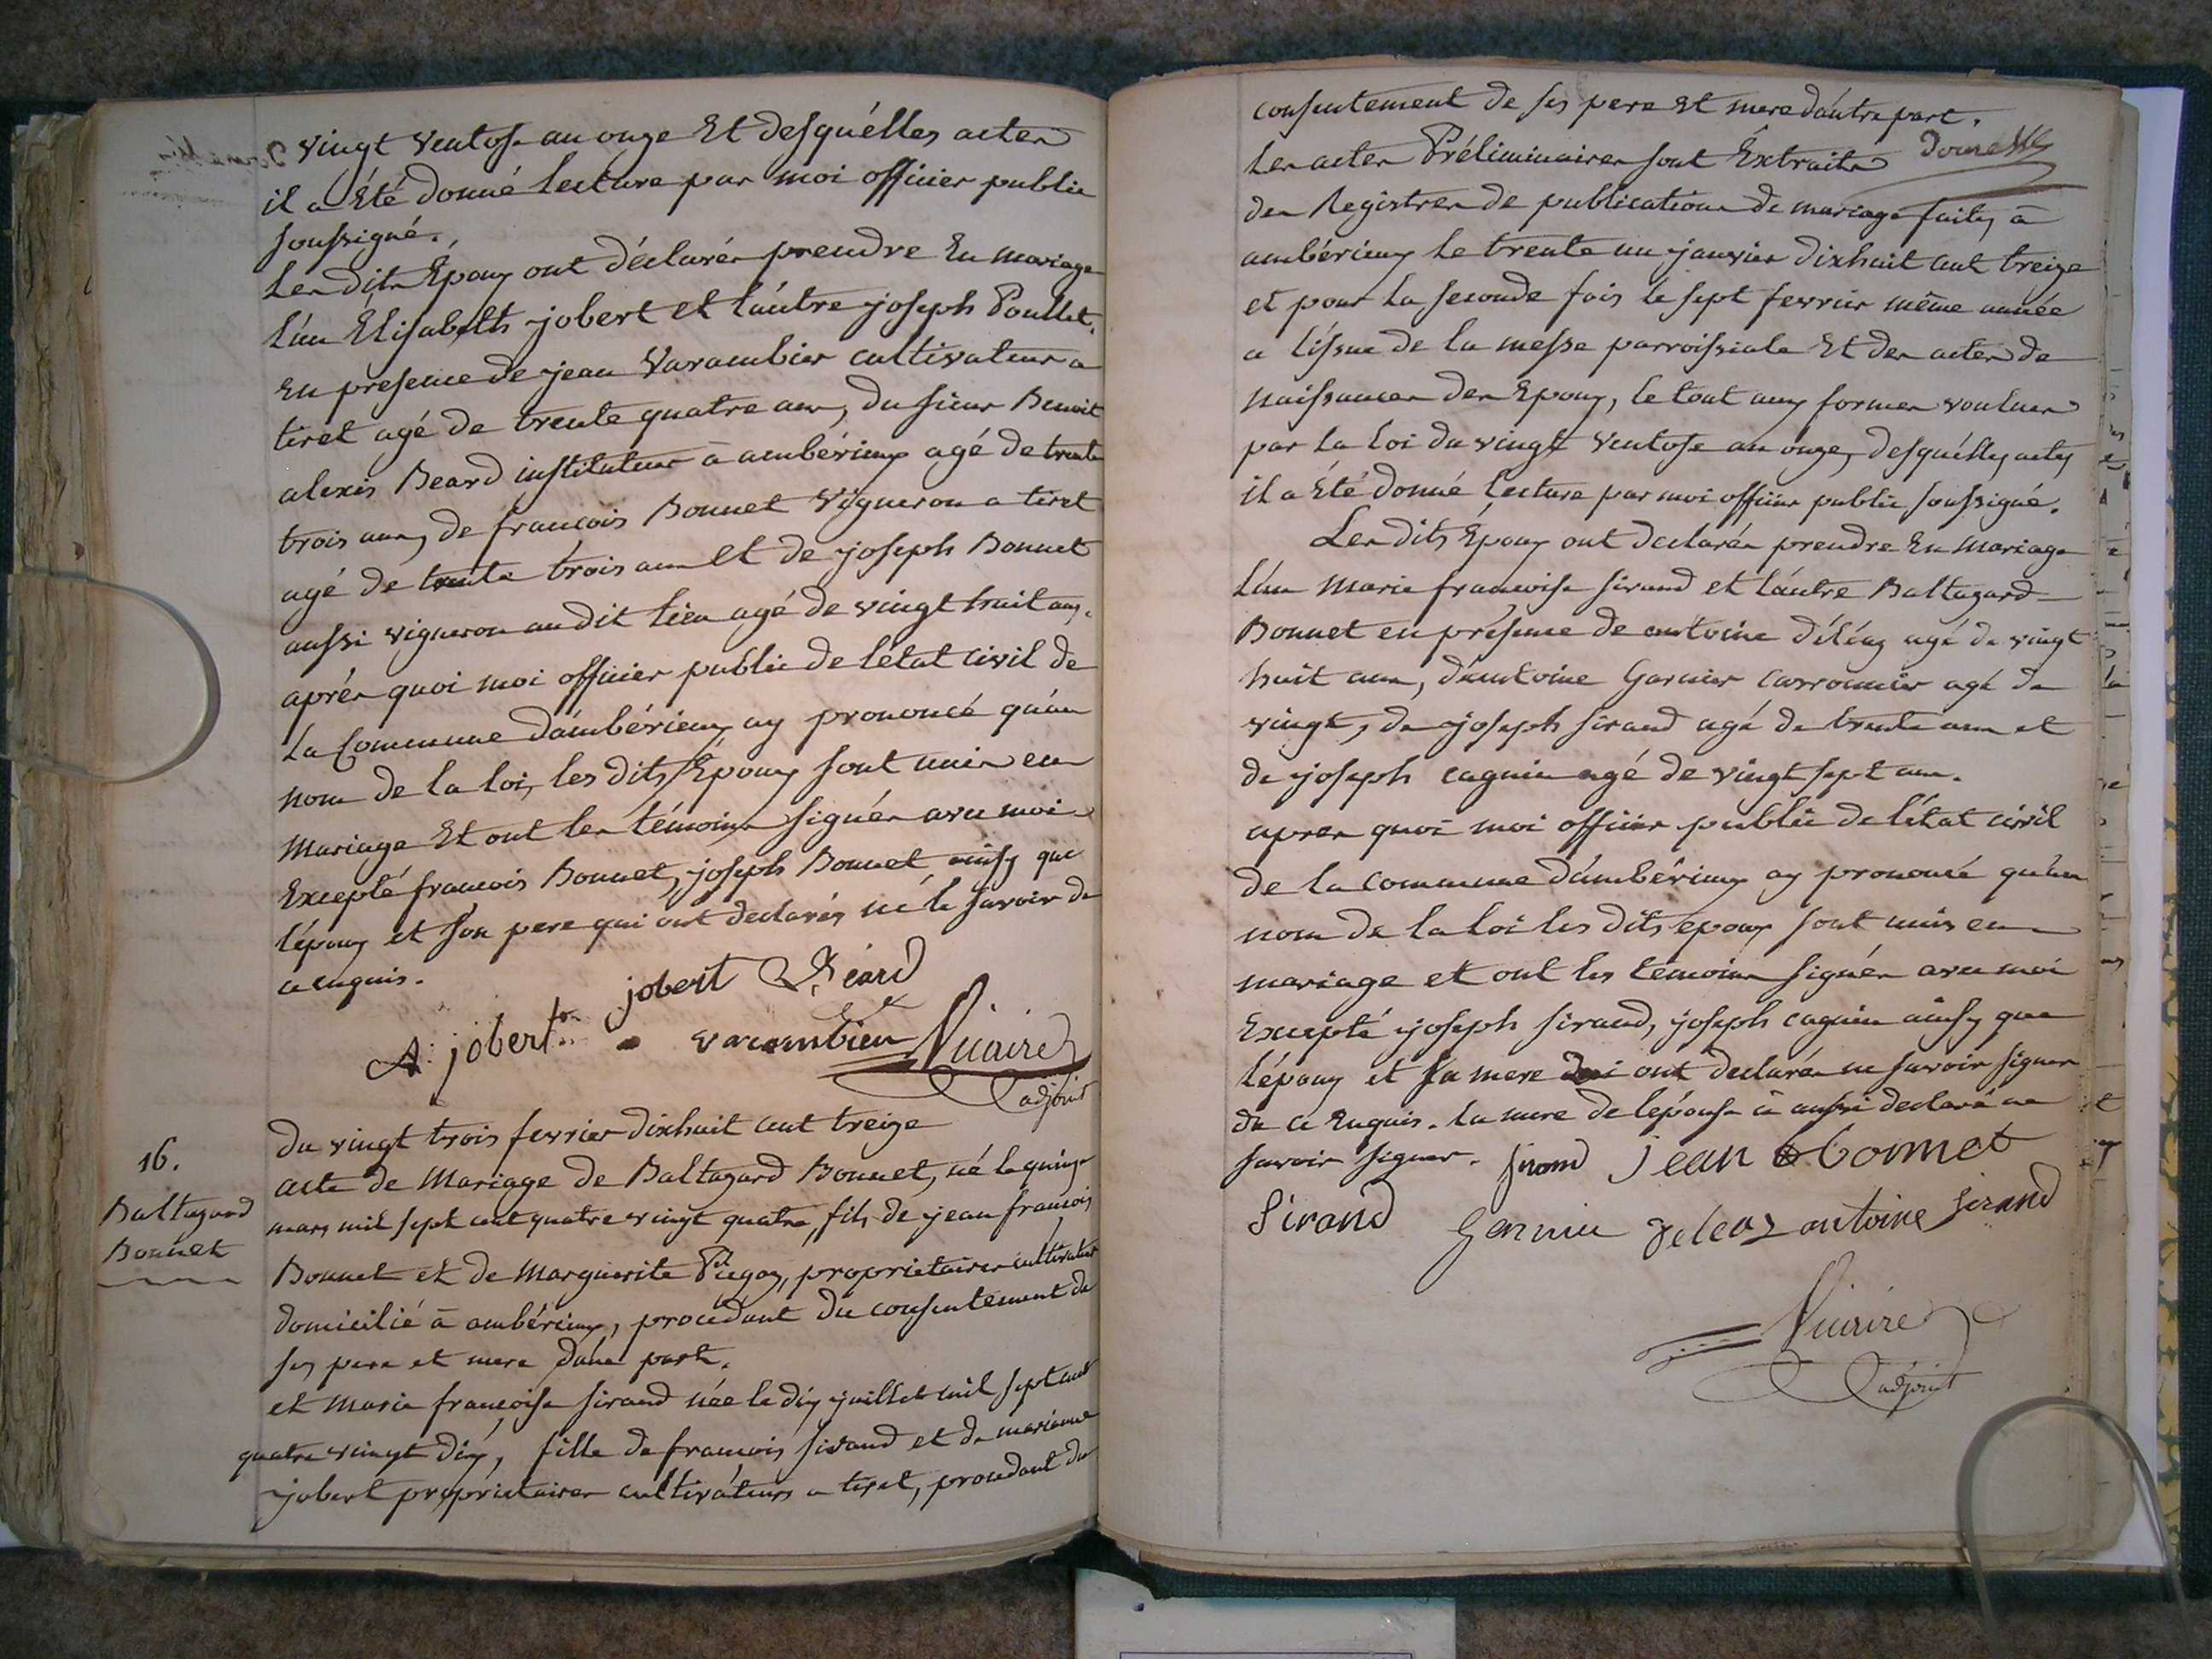 vingt ventose an onze Et desquélles actes
il a Été donné lecture par moi officier public
soussigné.
Les dits Époux ont déclarés prendre En mariage
l'un Elisabeth jobert et l'áutre joseph Poullet.
En presence de jean Varambier cultivateur a
tiret agé de trente quatre ans, du sieur Benoit
alexis Beard instituteur à ambérieux agé de trente
trois ans, de francois Bonnet Vigneron a tiret
agé de trente trois ans et de joseph Bonnet
aussi vigneron au dit lieu agé de vingt huit ans.
aprés quoi moi officier public de létat civil de
la Commune d'ambérieux ay prononcé qu'au
nom de la loi, les dits Époux sont unis en
Mariage Et ont les témoins signés avec moi
Excepté francois Bonnet, joseph Bonnet ainsy que
l'époux et son pere qui ont declarés ne le savoir de
ce enquis.
jobert Béard
A. jobert varambier Vicaire
adjoint
du vingt trois fevrier dixhuit cent treize
16.
Baltazard
Bonnet
acte de Mariage de Baltazard Bonnet, né le quinze
mars mil sept cent quatre vingt quatre, fils de jean francois
Bonnet et de Marguerite, proprietaires cultivateurs
domicilié à ambérieux, procedant du consentement de
ses pere et mere d'une part.
et marie francoise sirand née le dix juillet mil sept cent
quatre vingt dix, fille de francois sirand et de marianne
jobert propriétaires cultivateurs a tiret, procedant du
consentement de ses pere et mere d'áutre part.
Les actes Préliminaires sont Extraits
des Registres de publications de mariage faites à
ambérieux le trente un janvier dixhuit cent treize
et pour la seconde fois le sept fevrier même année
a l'issue de la messe parroissiale Et des actes de
naissances des Epoux, le tout aux formes voulues
par la loi du vingt ventose an onze, desquélles actes
il a été donné lecture par moi officier public soussigné.
Les dits Époux ont declarés prendre En mariage
l'un marie francoise sirand et l'áutre Baltazard
Bonnet en présence de antoine déléaz agé de vingt
huit ans, d'antoine Garnier carronnier agé de
vingt, de joseph sirand agé de trente ans et
de joseph cagnin agé de vingt sept ans.
apres quoi moi officier public de l'état civil
de la commune d'ambérieux ay prononcé qu'au
nom de la loi les dits epoux sont unis en
mariage et ont les témoins signés avec moi
Excepté joseph sirand, joseph cagnin ainsy que
l'époux et sa mere qui ont declarés ne savoir signer
de ce Enquis. la mere de l'épouse à aussi declaré ne
savoir signer. sirand jean bonnet
Sirand Garnier deleaz antoine sirand
Vicaire
adjoint